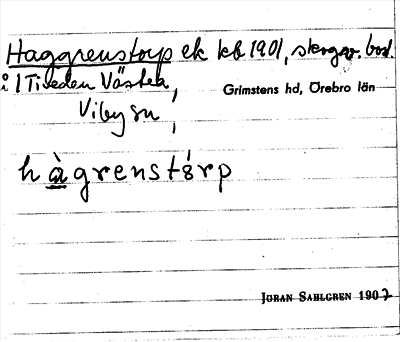 Haggrenstorp ek kb 1901, skogv. bost.
å 1 Tiveden Västra,
Grimstens hd, Örebro län
Viby sn,
hàgrenstórp
JÖRAN SAHLGREN 1907